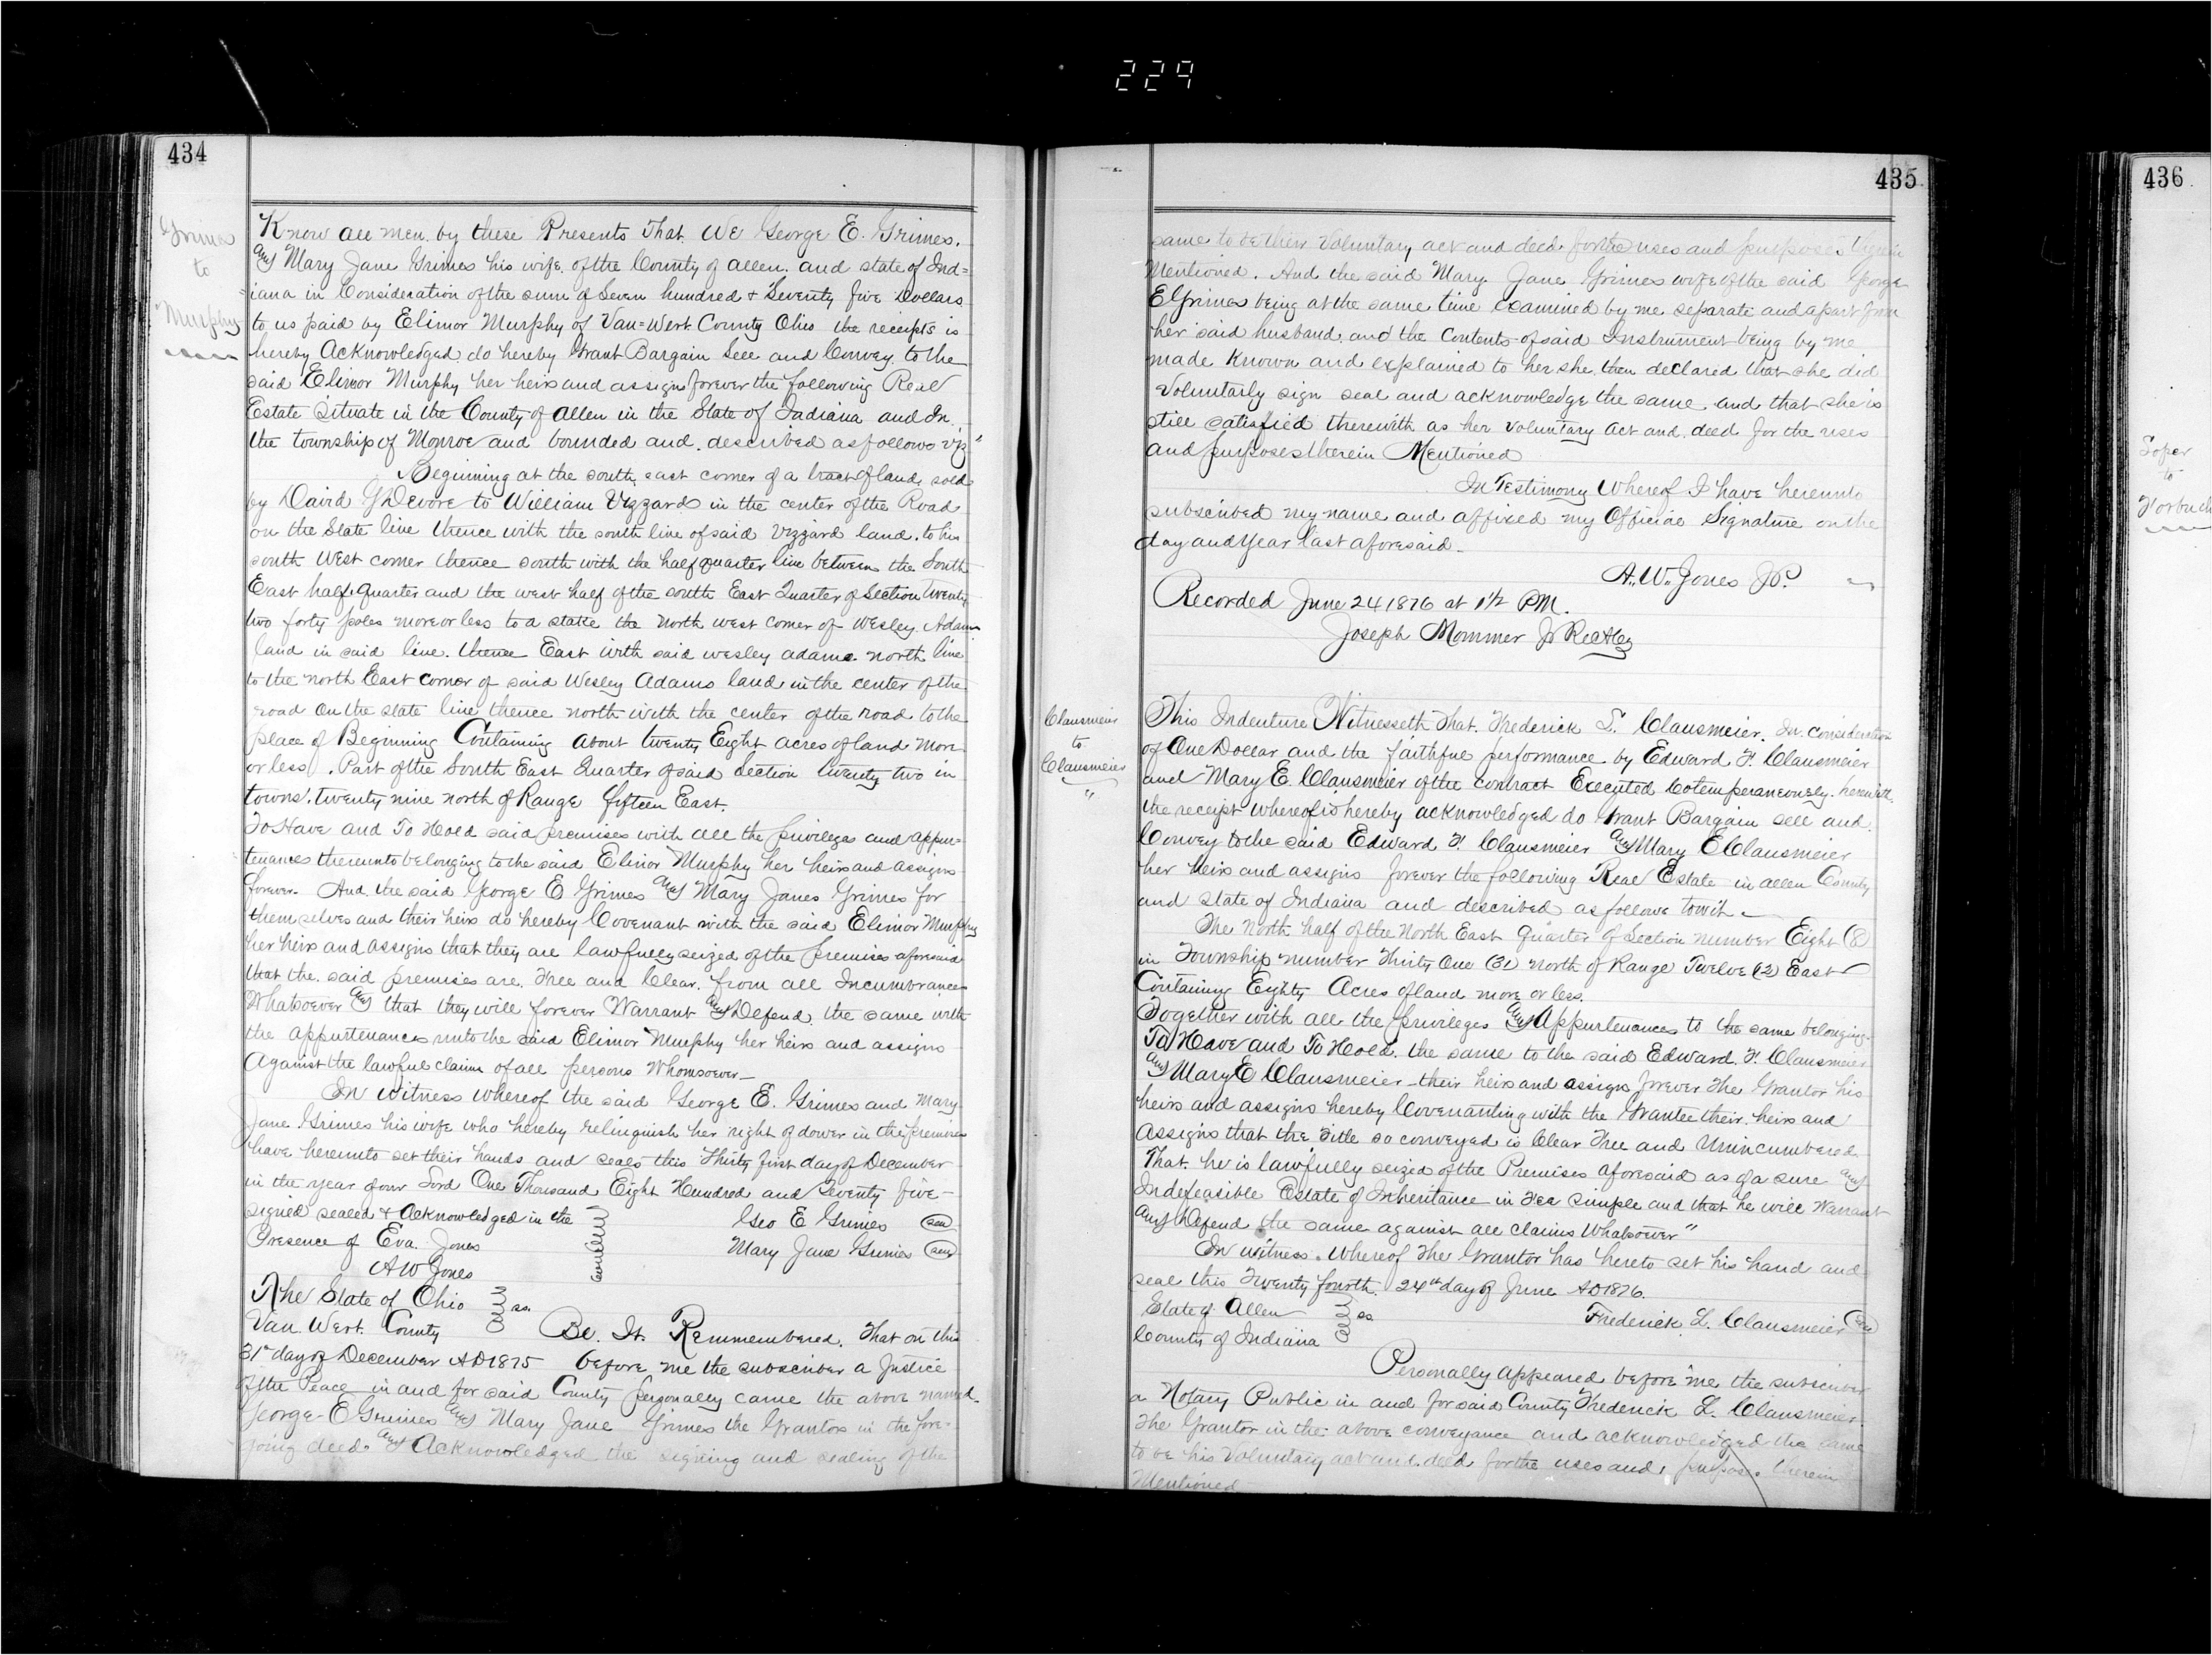 229
434
Grimes
to
Murphy
Know all men by these Presents That We George E. Grimes.
and Mary Jane Grimes his wife of the County of Allen. and state of Ind=
iana in Consideration of the sum of Seven hundred & Seventy five Dollars
to us paid by Elinor Murphy of Van=Wert County Ohio the receipts is
hereby Acknowledged do hereby Grant Bargain Sell and Convey to the
said Elinor Murphy her heirs and assigns forever the following Real
Estate Situate in the County of Allen in the State of Indiana and In
the township of Monroe and bounded and described as follows viz"
Beginning at the south east corner of a tract of land sold
by David G Devore to William Vizzard in the center of the Road
on the State line thence with the south line of said Vizzard land. to his
south West corner thence south with the half quarter line between the South
East half quarter and the west half of the south East Quarter of Section twenty
two forty poles more or less to a stake the North west corner of Wesley Adams
land in said line. thence East with said Wesley Adams north line
to the north East corner of said Wesley Adams land in the center of the
road On the state line thence north with the center of the road to the
place of Beginning Containing about twenty Eight acres of land More
or less. Part of the South East Quarter of said Section twenty two in
towns. twenty nine north of Range fifteen East.
To Have and To Hold said premises with all the privileges and appur=
tenances thereunto belonging to the said Elinor Murphy her heirs and assigns
forever- And the said George E Grimes and Mary Janes Grimes for
themselves and their heirs do hereby Covenant with the said Elinor Murphy
her heirs and assigns that they are lawfully seized of the premises aforesaid
that the said premises are. Free and Clear. from all Incumbrances
Whatsoever and that they will forever Warrant and Defend the same with
the appurtenances unto the said Elinor Murphy her heirs and assigns
Against the lawful claim of all persons Whomsoever-
In Witness Whereof the said George E. Grimes and Mary
Jane Grimes his wife who hereby relinquish her right of dower in the premises
have hereunto set their hands and seals this Thirty first day of December
in the year of our Lord One Thousand Eight Hundred and Seventy five-
signed sealed & Acknowledged in the Geo E Grimes seal
Presence of Eva. Jones Mary Jane Grimes seal
A W Jones
The State of Ohio ss.
Van Wert County Be. It. Remmembered. That on this
31st day of December AD 1875 before me the subscriber a Justice
of the Peace in and for said County personally came the above named
George E Grimes and Mary Jane Grimes the Grantors in the fore-
going deed. and Acknowledged the signing and sealing of the
435
same to be their Voluntary act and deed for the uses and purposes therein
Mentioned. And the said Mary Jane Grimes wife of the said George
E Grimes being at the same time examined by me separate and apart from
her said husband and the Contents of said Instrument being by me
made Known and explained to her she then declared that she did
Voluntarly sign seal and acknowledge the same and that she is
still satisfied therewith as her voluntary Act and deed for the uses
and purposes therein Mentioned
In Testimony Whereof I have hereunto
subscribed my name and affixed my Official Signature on the
day and Year last aforesaid-
A. W. Jones JP.
Recorded June 24 1876 at 1 1/2 P.M.
Joseph Mommer Jr Rec
Clausmeier
to
Clausmeier
"
This Indenture Witnesseth That. Frederick L. Clausmeier. In consideration
of One Dollar and the faithful performance by Edward F. Clausmeier
and Mary E. Clausmeier of the contract Executed Cotemperaneously. herewith
the receipt whereof is hereby acknowledged do Grant Bargain sell and
Convey to the said Edward F. Clausmeier and Mary E Clausmeier
her heirs and assigns forever the following Real Estate in Allen County
and state of Indiana and described as follows towit
The North half of the North East quarter of Section number Eight (8)
in Township number Thirty One (31) north of Range Twelve (12) East
Containing Eighty Acres of land more or less.
Together with all the privileges and Appurtenances to the same belonging-
To Have and To Hold. the same to the said Edward. F. Clausmeier
and Mary E Clausmeier their heirs and assigns forever the Grantor his
heirs and assigns hereby Covenanting with the Grantee their heirs and
Assigns that the title so conveyed is Clear Free and Unincumbered
That. he is lawfully seized of the Premises aforesaid as of a sure and
Indefeasible Estate of Inheritance in Fee simple and that he will Warrant
and Defend the same against all claims Whatsoever"
In witness. Whereof The Grantor has hereto set his hand and
seal this Twenty fourth. 24th day of June AD 1876.
State of Allen ss. Frederick. L. Clausmeier seal
County of Indiana
Personally appeared before me the subscriber
a Notary Public in and for said County Frederick L. Clausmeier
The Grantor in the above conveyance and acknowledged the same
to be his Voluntary act and deed for the uses and purposes therein
Mentioned
436
Soper
to